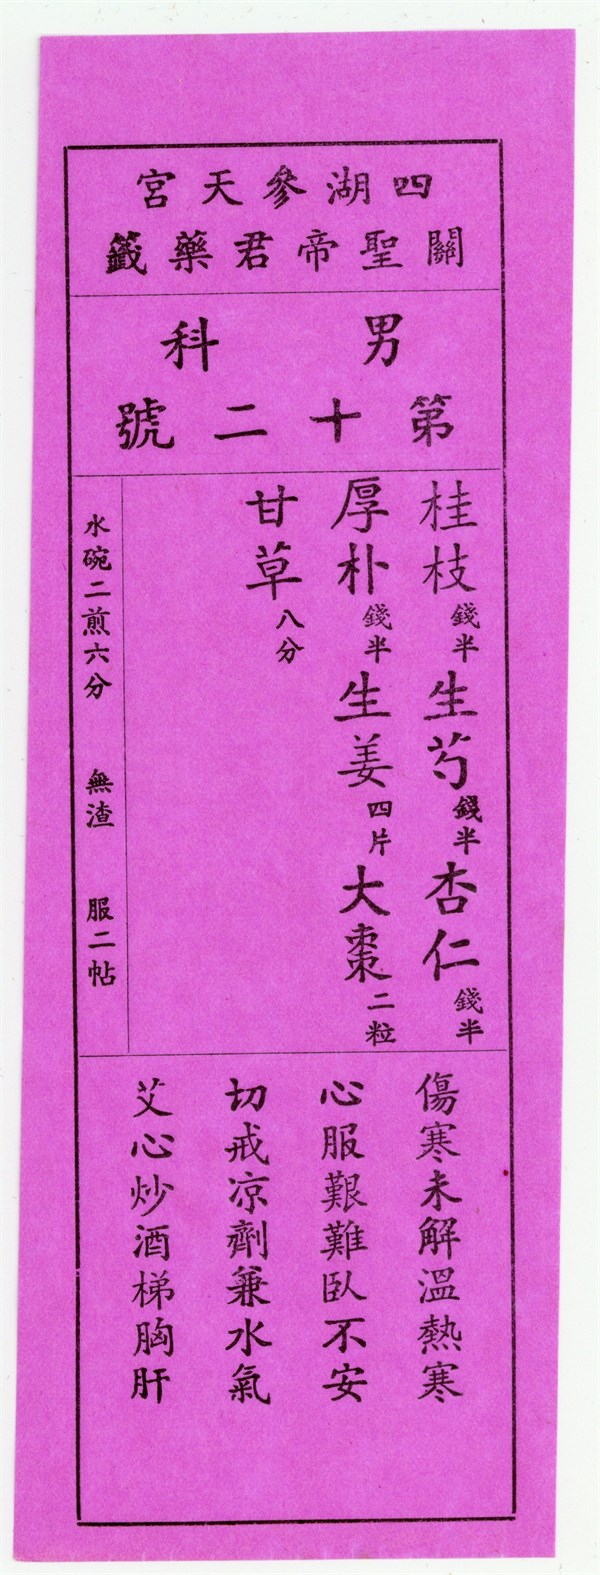 四湖參天宮
關聖帝君藥籤
男科
第十二號
桂枝錢半生芍錢半杏仁錢半
厚朴錢半生姜四片大棗二粒
甘草八分
水碗二煎六分 無渣 服二帖
傷寒未解溫熱寒
心服艱難臥不安
切戒凉劑兼水氣
艾心炒酒梯胸肝